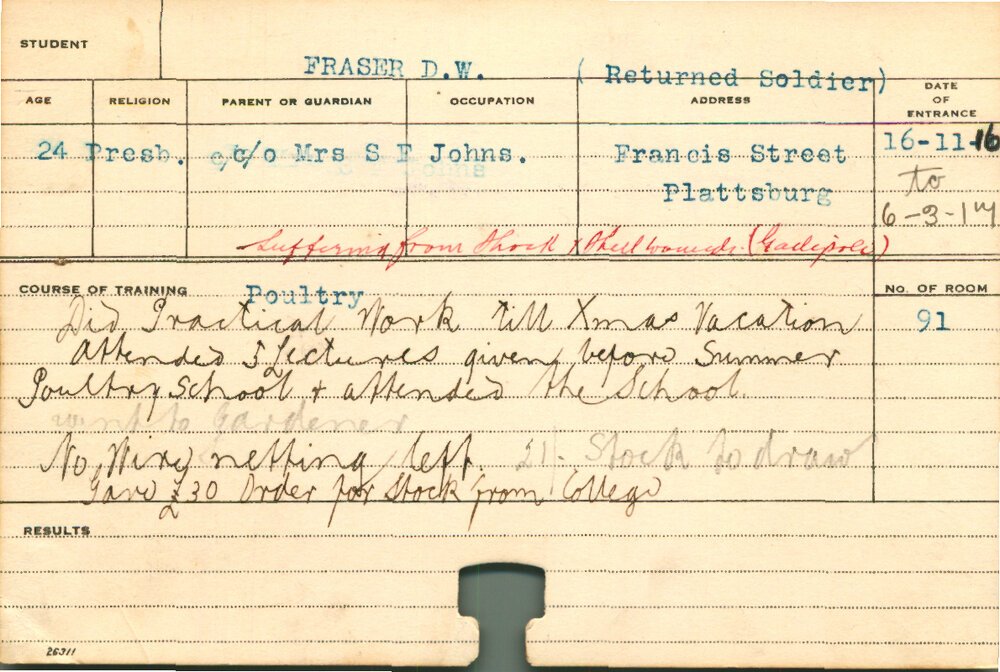 STUDENT
FRASER D.W. ( Returned Soldier)
AGE RELIGION PARENT OR GUARDIAN OCCUPATION ADDRESS DATE OF ENTRANCE
24 Presb. c/o Mrs S E Johns. Francis Street 16-11-16
Plattsburg to
6-3-17
Suffering from Shock & Shell wounds. (Gallipoli)
COURSE OF TRAINING Poultry No. OF ROOM
Did Practical Work till Xmas Vacation 91
Attended 5 Lectures given before Summer
Poultry School + attended the School.
went to Gardener
No Wire netting left. 21/- Stock to draw
Gave £30 Order for Stock from College
RESULTS
26311